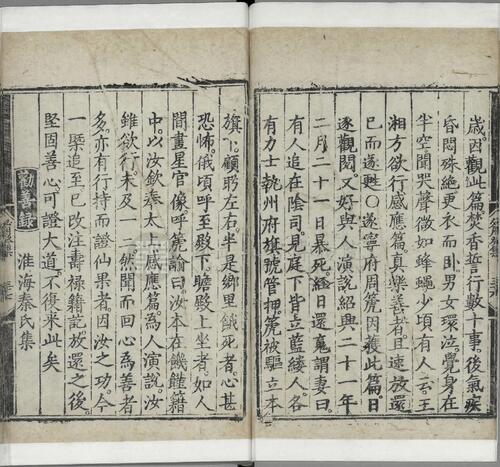 歲因觀此篇焚香誓行數十事。後氣疾
昏悶殊絶更衣而臥。男女環泣覺身在
半空聞哭聲微如蜂蠅少頃有人云。王
湘方欲行感應篇真樂善者。且速放還
已而遂甦○遂寧府周箎因獲此篇。日
逐觀閱。又好與人演說紹興二十一年
二月二十一日暴死。經日還魂謂妻曰。
有人追在陰司。見庭下皆立藍縷人。各
有力士執州府旗號管押箎被驅立本
旗下顧聆左右。半是鄉里餓死者。心甚
恐怖。俄頃呼至殿下。瞻殿上坐者。如人
間畫星官像。呼箎諭曰。汝本在饑饉籍
中。以汝欽奉太上感應篇。爲人演說。汝
雖欲行。未及一二。然聞而回心爲善者
多。亦有行持而證仙果者。因汝之功。今
一槩追至。已改注壽祿籍記。放還之後。
堅固善心。可證大道。不復來此矣
勸善錄 淮海秦氏集